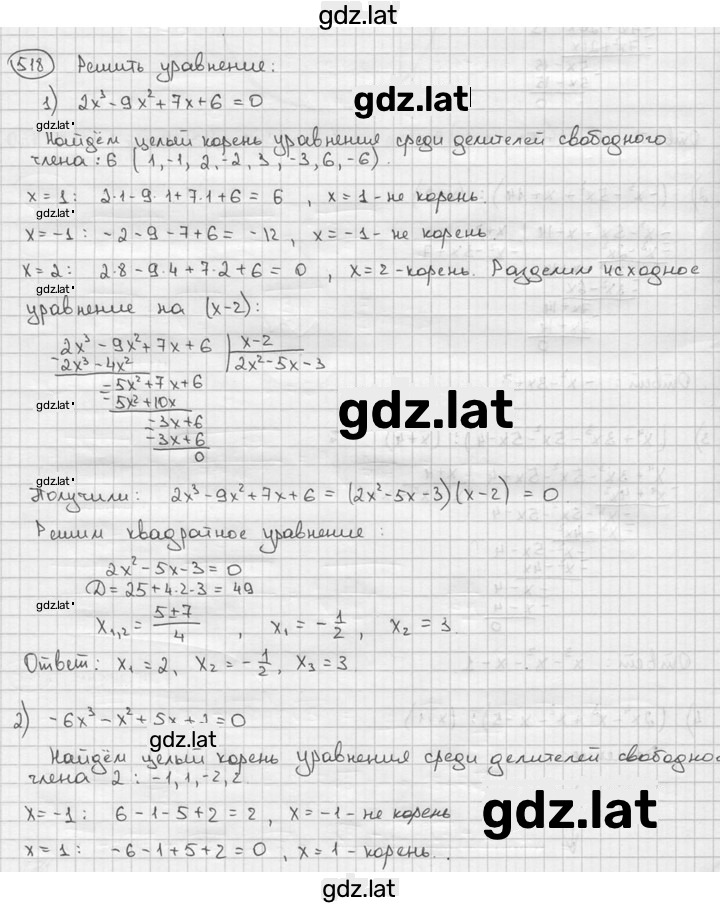 gdz.lat
518 Решить уравнение:
1) 2x³ - 9x² + 7x + 6 = 0
gdz.lat
gdz.lat
Найдём целый корень уравнения среди делителей свободного
члена: 6 (1, -1, 2, -2, 3, -3, 6, -6).
x = 1: 2·1 - 9·1 + 7·1 + 6 = 6 , x = 1 - не корень.
gdz.lat
x = -1: -2 - 9 - 7 + 6 = -12, x = -1 - не корень.
x = 2: 2·8 - 9·4 + 7·2 + 6 = 0 , x = 2 - корень. Разделим исходное
gdz.lat
уравнение на (x-2):
2x³ - 9x² + 7x + 6 | x - 2
- 2x³ - 4x² 2x² - 5x - 3
= 5x² + 7x + 6
gdz.lat
- 5x² + 10x
gdz.lat
= 3x + 6
- 3x + 6
0
gdz.lat
Получили: 2x³ - 9x² + 7x + 6 = (2x² - 5x - 3)(x - 2) = 0.
Решим квадратное уравнение:
2x² - 5x - 3 = 0
D = 25 + 4·2·3 = 49
gdz.lat
x₁,₂ = (5±7)/4 , x₁ = -1/2, x₂ = 3.
Ответ: x₁ = 2, x₂ = -1/2, x₃ = 3
2) -6x³ - x² + 5x + 1 = 0
gdz.lat
Найдём целый корень уравнения среди делителей свободно
члена 2: -1, 1, -2, 2.
x = -1: 6 - 1 - 5 + 2 = 2 , x = -1 - не корень
gdz.lat
x = 1: -6 - 1 + 5 + 2 = 0 , x = 1 - корень.
gdz.lat